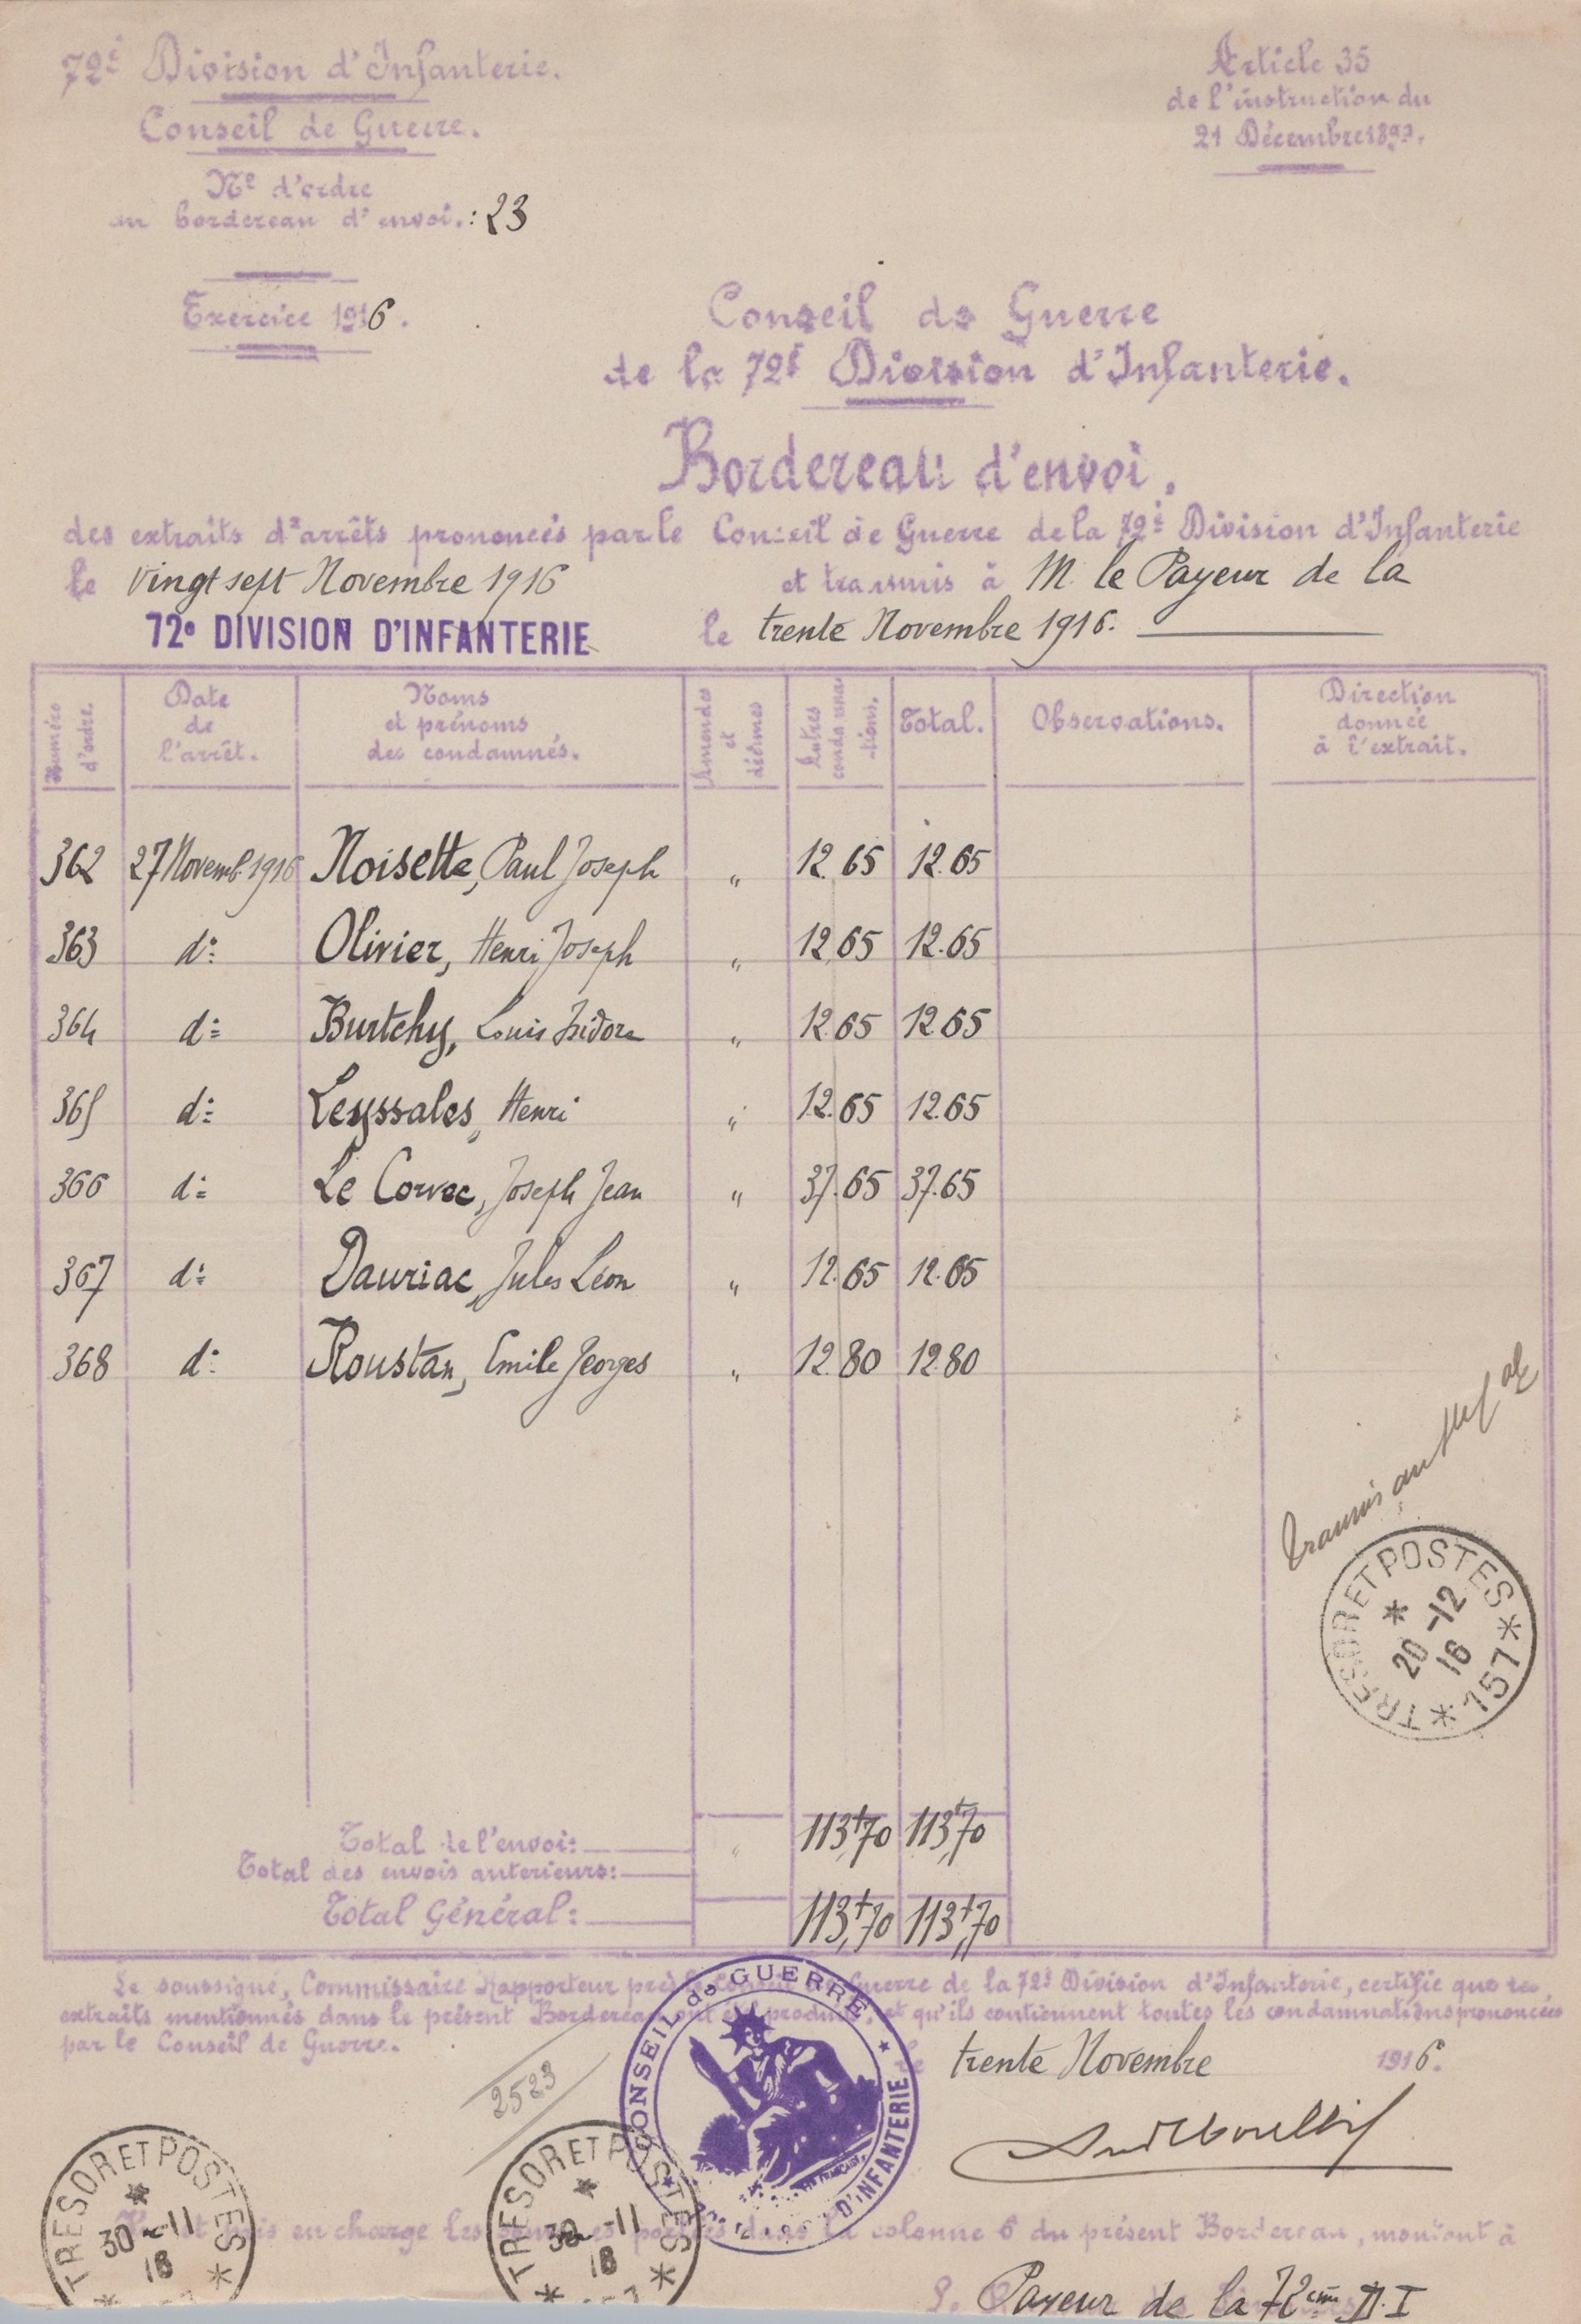 72e Division d'Infanterie.
Conseil de Guerre.
No d'ordre
du bordereau d'envoi. : 23
Exercice 1916.
Article 35
de l'instruction du
21 Décembre
Conseil de Guerre
de la 72e Division d'Infanterie.
Bordereau d'envoi.
des extraits d'arrêts prononcés par le Conseil de Guerre de la 72e Division d'Infanterie
le vingt sept Novembre 1916 et transmis à M. le Payeur de la
72e DIVISION D'INFANTERIE le trente Novembre 1916.
Numéro d'ordre. Date de l'arrêt. Noms et prénoms des condamnés. Amendes et décimes Autres condamnations. Total. Observations. Direction donnée à l'extrait.
362 27 Novemb. 1916 Noisette, Paul Joseph " 12.65 12.65
363 do Olivier, Henri Joseph " 12.65 12.65
364 do Burtchy, Louis Isidore " 12.65 12.65
365 do Leyssales, Henri " 12.65 12.65
366 do Le Corvec, Joseph Jean " 37.65 37.65
367 do Dauriac, Jules Léon " 12.65 12.65
368 do Roustan, Emile Georges " 12.80 12.80
transmis au
TRESOR ET POSTES * 157 *
* 20 -12 16
Total de l'envoi: " 113f,70 113f,70
Total des envois antérieurs:
Total Général: 113f,70 113f,70
Le soussigné, Commissaire Rapporteur près le Conseil de Guerre de la 72e Division d'Infanterie, certifie que les
extraits mentionnés dans le présent Bordereau ont été produits, et qu'ils contiennent toutes les condamnations prononcées
par le Conseil de Guerre.
le trente Novembre 1916.
2523
CONSEIL de GUERRE * D'INFANTERIE
TRESOR ET POSTES *
* 30 -11 16
TRESOR ET POSTES *
* 30 -11 16
pris en charge les sommes portées dans la colonne 6 du présent Bordereau, montant à
Payeur de la 72ème D.I